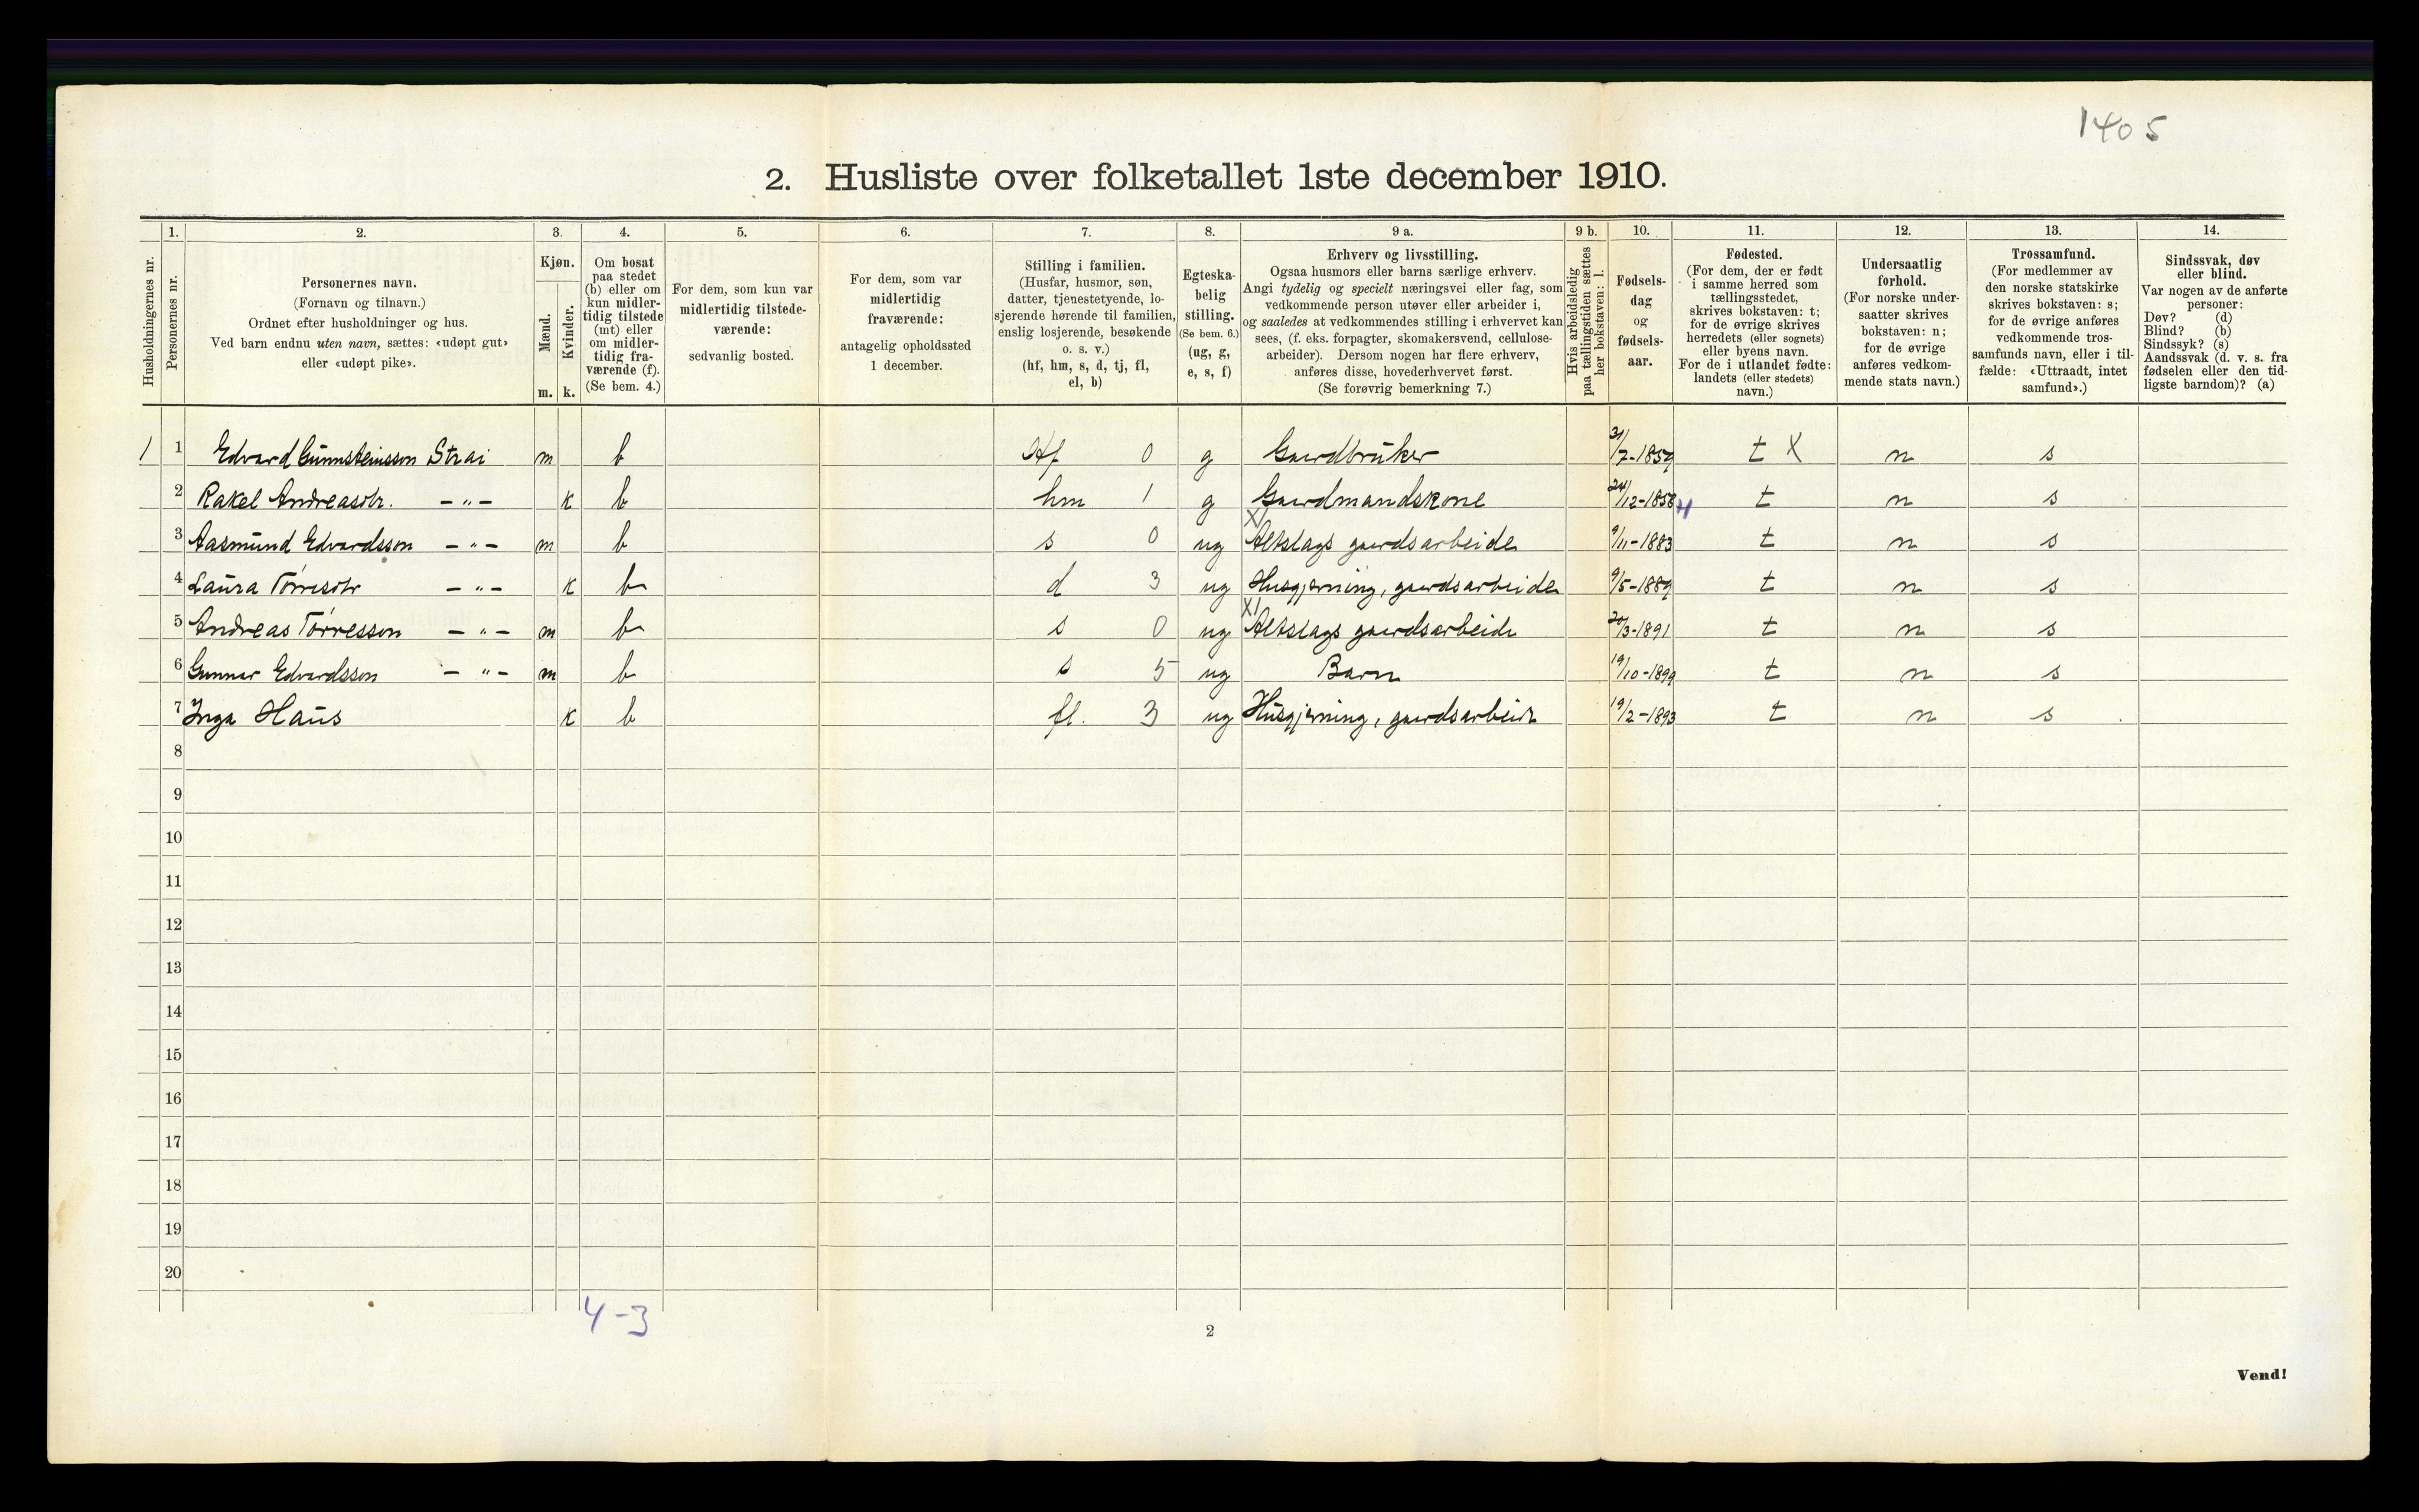 1405
2. Husliste over folketallet 1ste december 1910.
Husholdningernes nr.
1.
Personernes nr.
2.
Personernes navn.
(Fornavn og tilnavn.)
Ordnet efter husholdninger og hus.
Ved barn endnu uten navn, sættes: «udøpt gut»
eller «udøpt pike».
3.
Kjøn.
Mænd.
Kvinder.
m. k.
4.
Om bosat
paa stedet
(b) eller om
kun midler-
tidig tilstede
(mt) eller
om midler-
tidig fra-
værende (f).
(Se bem. 4.)
5.
For dem, som kun var
midlertidig tilstede-
værende:
sedvanlig bosted.
6.
For dem, som var
midlertidig
fraværende:
antagelig opholdssted
1 december.
7.
Stilling i familien.
(Husfar, husmor, søn,
datter, tjenestetyende, lo-
sjerende hørende til familien,
enslig losjerende, besøkende
o. s. v.)
(hf, hm, s, d, tj, fl,
el, b)
8.
Egteska-
belig
stilling.
(Se bem. 6.)
(ug, g,
e, s, f)
9 a.
Erhverv og livsstilling.
Ogsaa husmors eller barns særlige erhverv.
Angi tydelig og specielt næringsvei eller fag, som
vedkommende person utøver eller arbeider i,
og saaledes at vedkommendes stilling i erhvervet kan
sees, (f. eks. forpagter, skomakersvend, cellulose-
arbeider). Dersom nogen har flere erhverv,
anføres disse, hovederhvervet først.
(Se forøvrig bemerkning 7.)
9 b.
Hvis arbeidsledig
paa tællingstiden sættes
her bokstaven: l.
10.
Fødsels-
dag
og
fødsels-
aar.
11.
Fødested.
(For dem, der er født
i samme herred som
tællingsstedet,
skrives bokstaven: t;
for de øvrige skrives
herredets (eller sognets)
eller byens navn.
For de i utlandet fødte:
landets (eller stedets)
navn.)
12.
Undersaatlig
forhold.
(For norske under-
saatter skrives
bokstaven: n;
for de øvrige
anføres vedkom-
mende stats navn.)
13.
Trossamfund.
(For medlemmer av
den norske statskirke
skrives bokstaven: s;
for de øvrige anføres
vedkommende tros-
samfunds navn, eller i til-
fælde: «Uttraadt, intet
samfund».)
14.
Sindssvak, døv
eller blind.
Var nogen av de anførte
personer:
Døv? (d)
Blind? (b)
Sindssyk? (s)
Aandssvak (d. v. s. fra
fødselen eller den tid-
ligste barndom)? (a)
1 1 Edvard Gunnsteinsson Strai m b Hf 0 g Gaardbruker 31/7-1859 t X n s
2 Rakel Andreasdtr. -"- k b hm 1 g Gaardmandskone 24/12-1858 t n s
3 Aasmund Edvardsson -"- m b s 0 ug Altslags gaardsarbeide 9/11-1883 t n s
4 Laura Tørresdtr -"- k b d 3 ug Husgjerning, gaardsarbeide 9/5-1889 t n s
5 Andreas Tørresson -"- m b s 0 ug Altslags gaardsarbeide 20/3-1891 t n s
6 Gunnar Edvardsson -"- m b s 5 ug Barn 19/10-1899 t n s
7 Inga Haus k b fl. 3 ug Husgjerning, gaardsarbeide 19/2-1893 t n s
8
9
10
11
12
13
14
15
16
17
18
19
20
4-3
2
Vend!